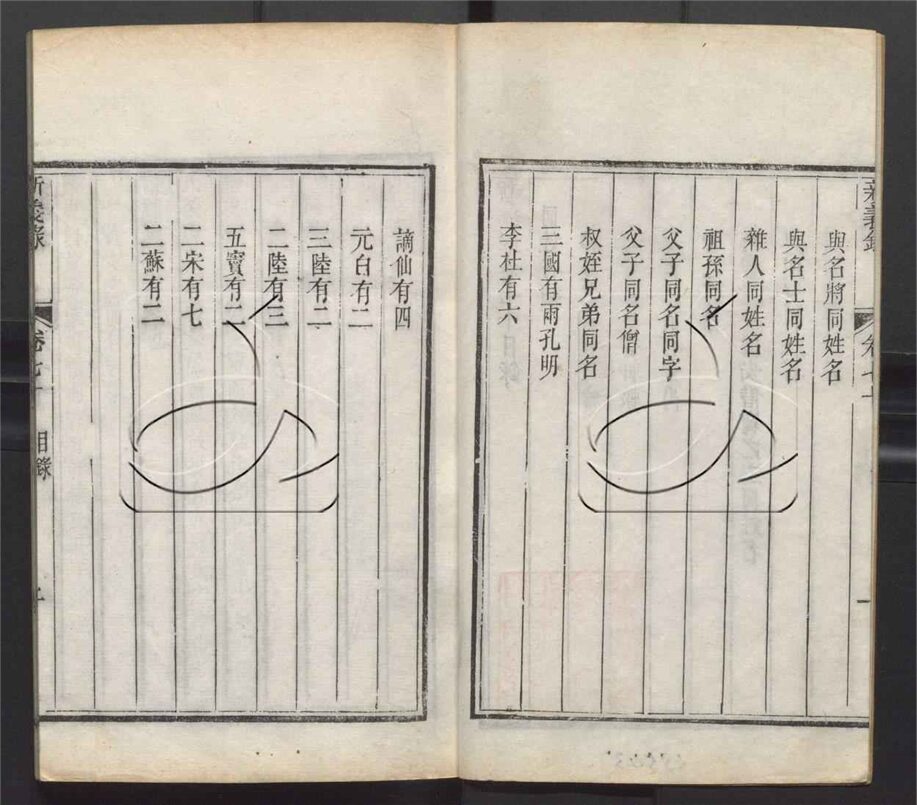 與名將同姓名
與名士同姓名
雜人同姓名
祖孫同名
父子同名同字
父子同名僧
叔姪兄弟同名
三國有兩孔明
李杜有六
謫仙有四
元白有二
三陸有二
二陸有三
五竇有二
二宋有七
二蘇有二
新義錄
卷七十
目錄